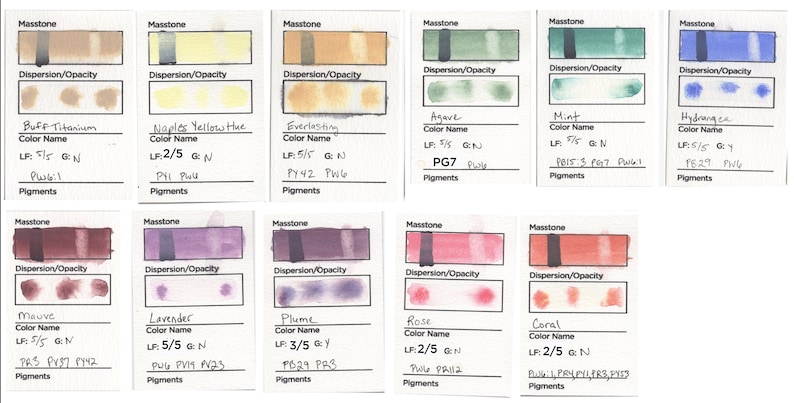 Masstone
Dispersion/Opacity
Buff Titanium
Color Name
LF: 5/5 G: N
PW6:1
Pigments
Masstone
Dispersion/Opacity
Naples Yellow Hue
Color Name
LF: 2/5 G: N
PY1 PW6
Pigments
Masstone
Dispersion/Opacity
Everlasting
Color Name
LF: 5/5 G: N
PY42 PW6
Pigments
Masstone
Dispersion/Opacity
Agave
Color Name
LF: 5/5 G: N
PG7 PW6
Pigments
Masstone
Dispersion/Opacity
Mint
Color Name
LF: 5/5 G: N
PB15:3 PG7 PW6:1
Pigments
Masstone
Dispersion/Opacity
Hydrangea
Color Name
LF: 5/5 G: Y
PB29 PW6
Pigments
Masstone
Dispersion/Opacity
Mauve
Color Name
LF: 5/5 G: N
PR3 PV37 PY42
Pigments
Masstone
Dispersion/Opacity
Lavender
Color Name
LF: 5/5 G: N
PW6 PV19 PV23
Pigments
Masstone
Dispersion/Opacity
Plume
Color Name
LF: 3/5 G: Y
PB29 PR3
Pigments
Masstone
Dispersion/Opacity
Rose
Color Name
LF: 2/5 G: N
PW6 PR112
Pigments
Masstone
Dispersion/Opacity
Coral
Color Name
LF: 2/5 G: N
PW6:1, PR4, PY1, PR3, PY53
Pigments